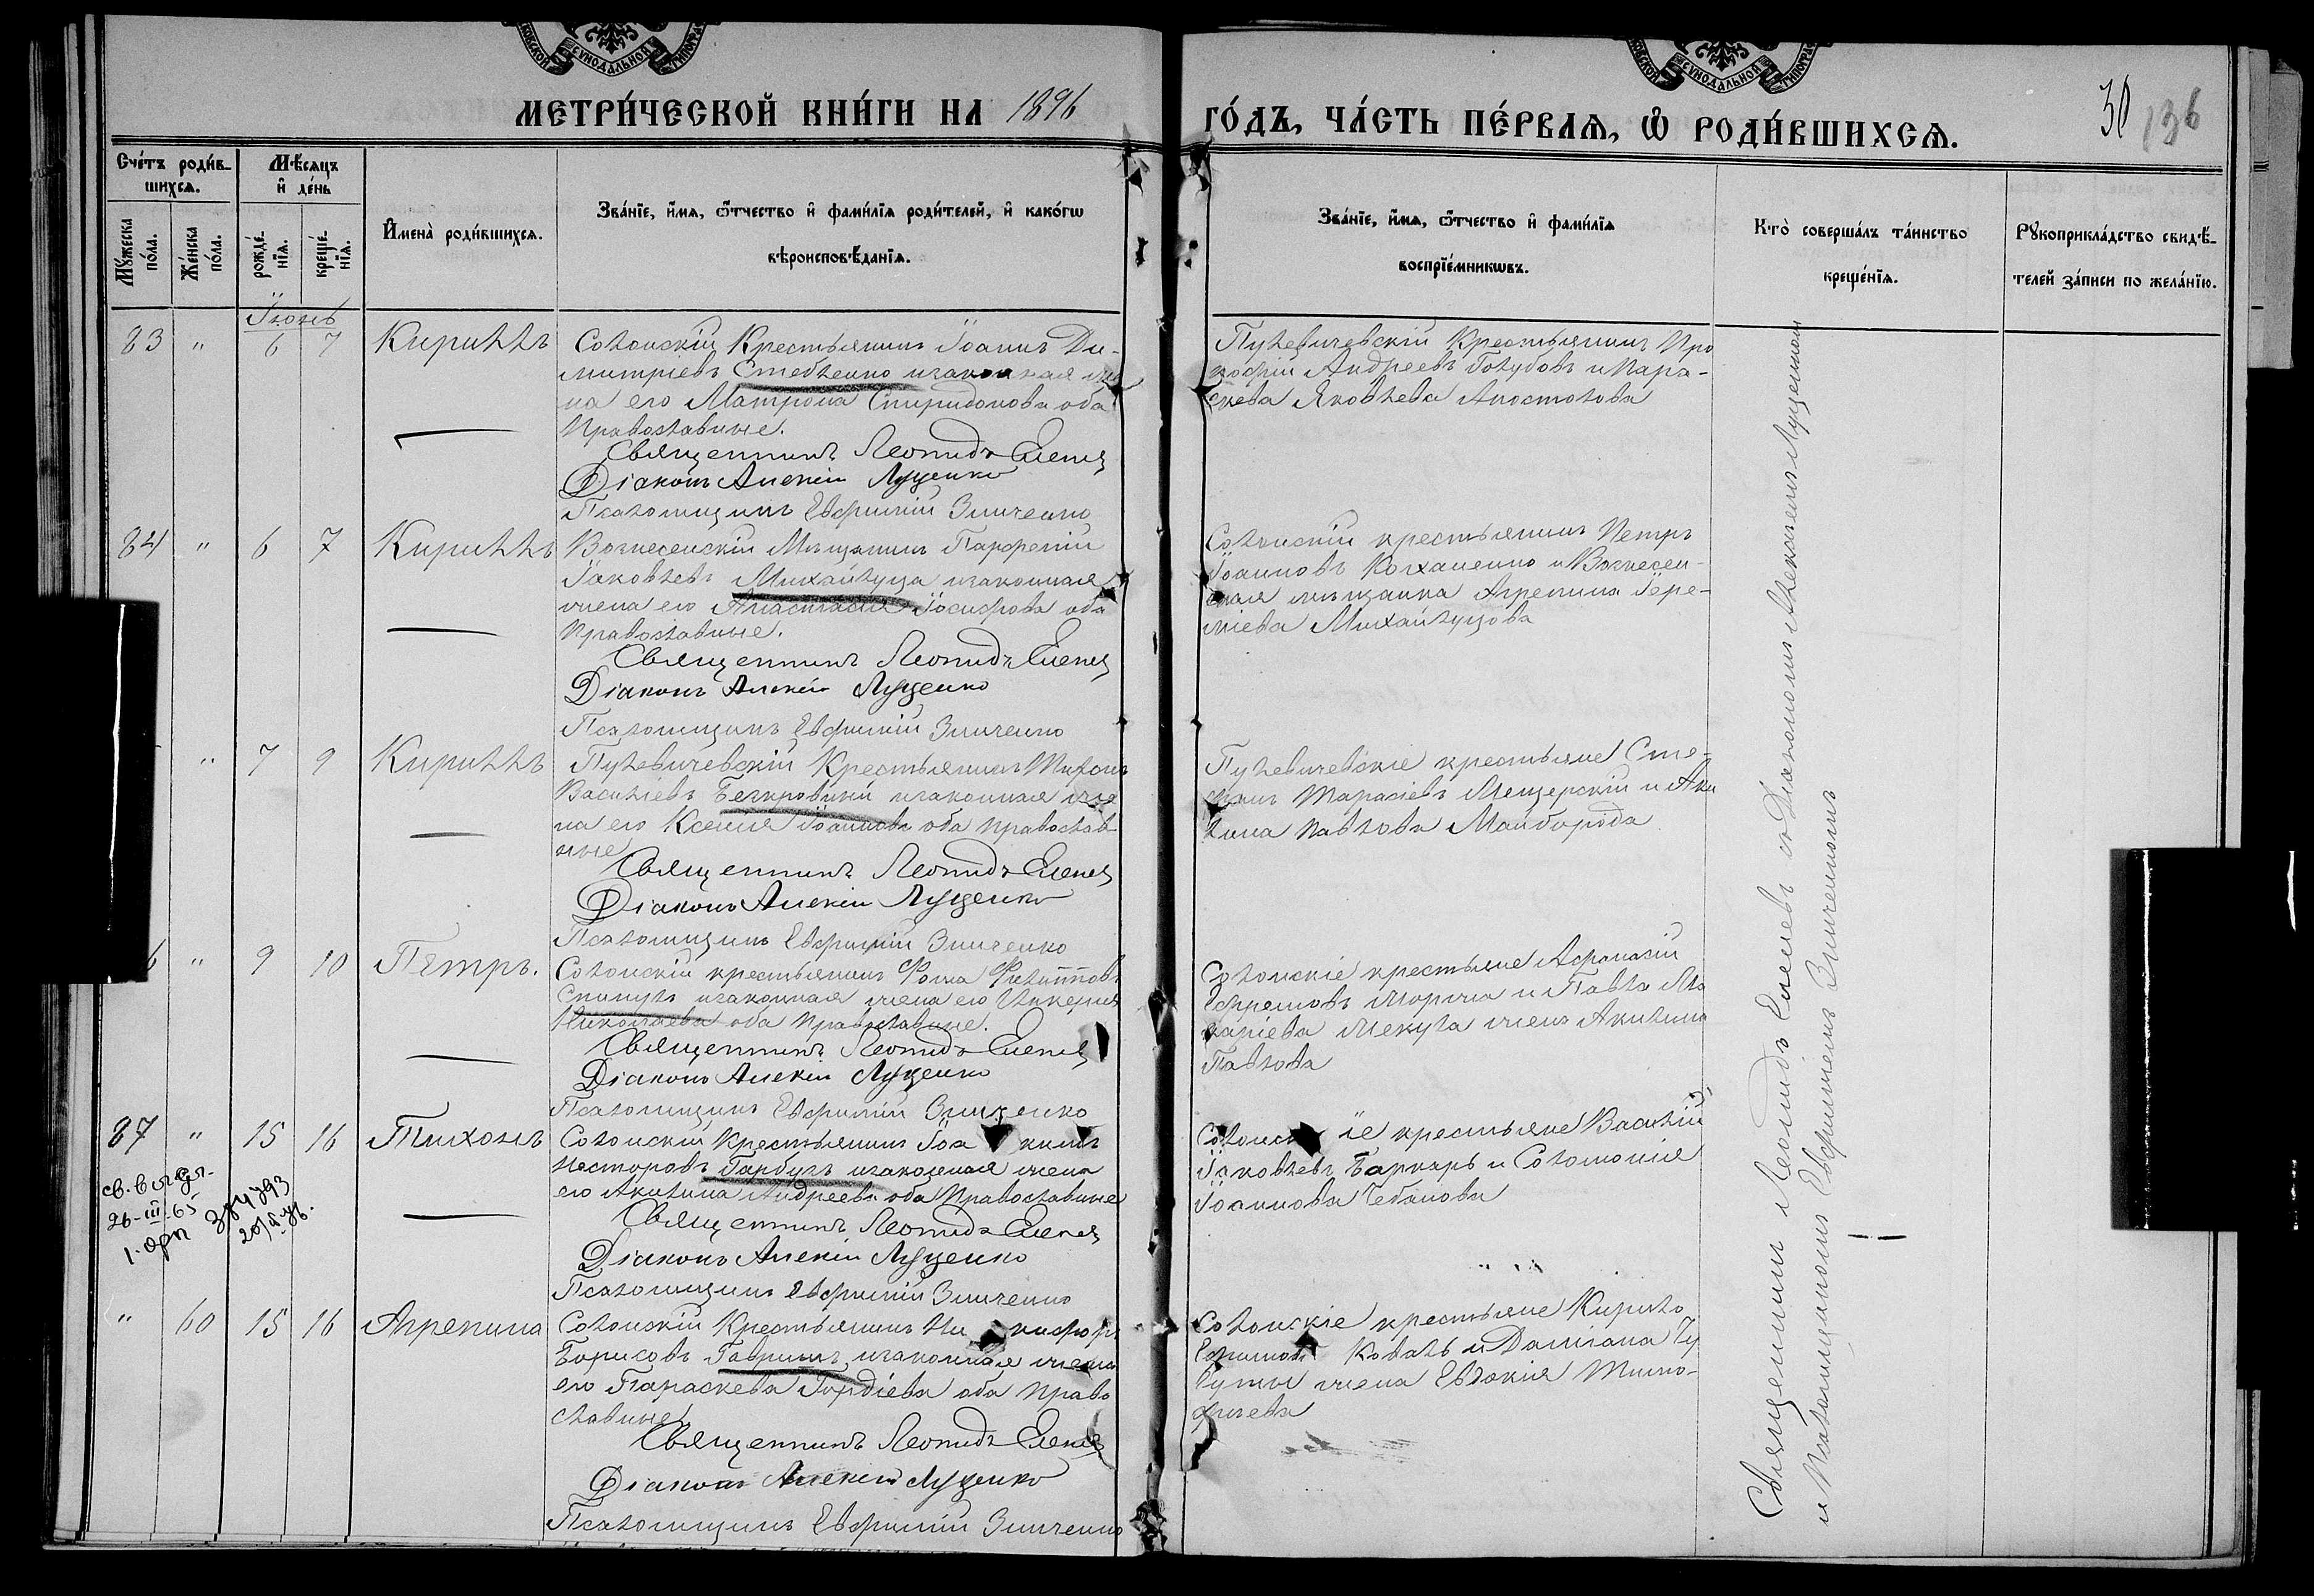 МЕТРИ́ЧЕСКОЙ КНИ́ГИ НА 1896
ГО́ДЪ, ЧА́СТЬ ПЕ́РВАѦ, Ѽ РОДИ́ВШИХСѦ.
30 136
Сче́тъ роди́в-
шихсѧ.
Мꙋ́жеска по́ла.
Же́нска по́ла.
Мѣ́сѧцъ
и҆ де́нь
рожде́-
нїѧ.
креще́-
нїѧ.
И҆мена̀ роди́вшихсѧ.
Зва́нїе, и҆́мѧ, ѻ҆́тчество и҆ фами́лїѧ роди́телей, и҆ како́гѡ
вѣроисповѣ́данїѧ.
Зва́нїе, и҆́мѧ, ѻ҆́тчество и҆ фами́лїѧ
воспрїе́мникѡвъ.
Кто̀ соверша́лъ та́инство
креще́нїѧ.
Рꙋкоприкла́дство свидѣ́-
телей за́писи по жела́нїю.
Іюнь
83 " 6 7 Кириллъ
Солонскій Крестьянинъ Іоаннъ Ди-
митріевъ Стебленко и законная же
на его Матрона Спиридонова оба
Православные.
Священникъ Леонидъ Еленев
Діаконъ Алексій Луценко
Псаломщикъ Евфимій Зинченко
Пулевичевскій Крестьянинъ Про
кофій Андреевъ Голубовъ и Пара-
скева Яковлева Апостолова
84 " 6 7 Кириллъ
Вознесенскій Мѣщанинъ Парфеній
Іаковлевъ Михайлуца и законная
жена его Анастасія Іосифова оба
Православные.
Священникъ Леонидъ Еленев
Діаконъ Алексій Луценко
Псаломщикъ Евфимій Зинченко
Солонскій крестьянинъ Петръ
Іоанновъ Коханенко и Вознесен-
ская мѣщанка Агрепина Іере-
міева Михайлуцова
" 7 9 Кириллъ
Пулевичевскій Крестьянинъ Тихонъ
Василіевъ Безкровный и законная же
на его Ксенія Іоаннова оба православ
ные
Священникъ Леонидъ Еленев
Діаконъ Алексій Луценко
Псаломщикъ Евфимій Зинченко
Пулевичевскіе крестьяне Сте-
фанъ Тарасіевъ Мещерскій и Аки
лина Павлова Майборода
6 " 9 10 Петръ.
Солонскій крестьянинъ Фома Филипповъ
законная жена его Гликерія
Николаева оба Православные.
Священникъ Леонидъ Еленев
Діаконъ Алексій Луценко
Псаломщикъ Евфимій Зинченко
Солонскіе крестьяне Афанасій
Ефремовъ и Павла Ма
каріева жена Акилина
Павлова
87 " 15 16 Тихонъ
Солонскій Крестьянинъ Іоа кимъ
Несторовъ Гарбузъ и законная жена
его Акилина Андреева оба Православные
Священникъ Леонидъ Еленев
Діаконъ Алексій Луценко
Псаломщикъ Евфимій Зинченко
Солонск іе крестьяне Василій
Іаковлевъ Баркарь и Соломонія
Іоаннова Чебанова
26-III-65
" 60 15 16 Агрепина
Солонскій Крестьянинъ Ни кифоръ
Борисовъ и законная жена
его Параскева Гордіева оба Право
славные
Священникъ Леонидъ Еленев
Діаконъ Алексій Луценко
Псаломщикъ Евфимій Зинченко
Солонскіе крестьяне Кирилло
Ефимовъ Коваль и Даміана Чу
жена Евдокія Тимо-
фіева
Священникъ Леонидъ Еленевъ съ Діакономъ Алексіемъ Луценкомъ
и Псаломщикомъ Евфиміемъ Зинченкомъ